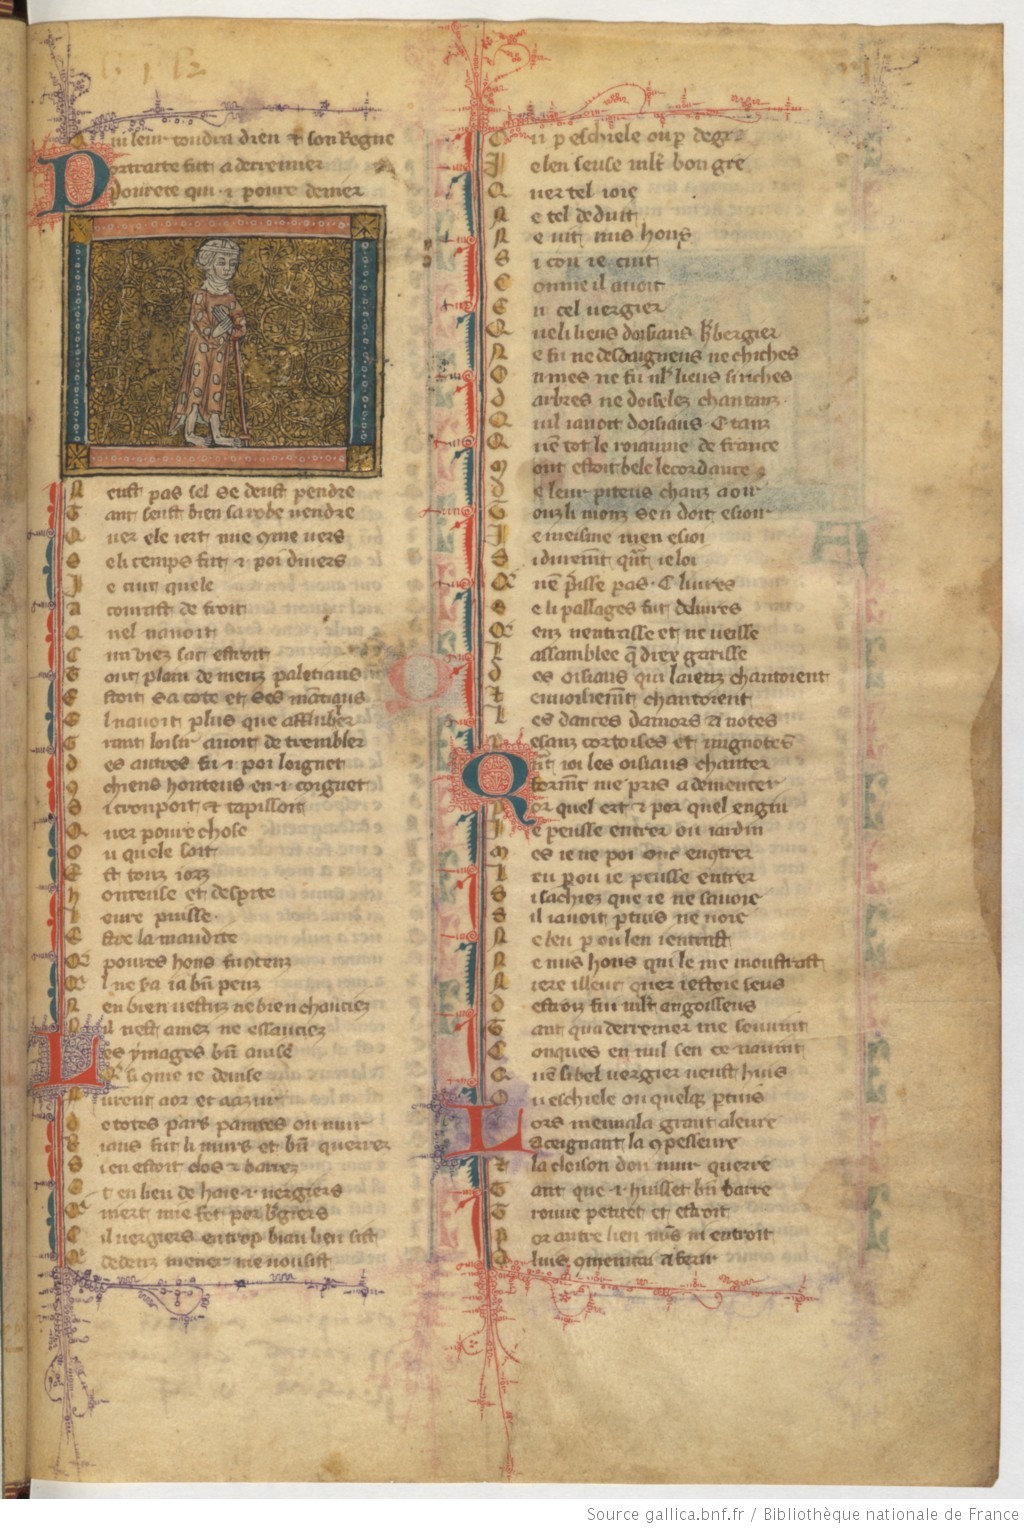 Qui leur toudra dieu et son Regne
Portraite fut a derrenier
Pourete qui .i. poure denier
N eust pas sel se deust pendre
T ant seust bien sa robe vendre
Q uer ele iert nue 9me vers
S e li temps fut .i. poi divers
I e cuit quele
A courast de froit
Q uel navoit
C un viez sac estroit
T out plain de
E stoit sa cote et ses
E l navoit plus que affubler
G rant loisir avoit de trembler
D es autres fu .i. poi loignet
9 chiens honteus en .i. coignet
S i croupoit et tapissoit
Q uer poure chose
O u quele soit
E st touz iorz
H onteuse et despite
L eure puisse
E stre la maudite
Q poures hons fu
Q l ne sa ia bn peuz
N en bien vestuz ne bien chauciez
N il nest amez ne essauciez
Les ymages bn avise
Q si 9me ie devise
F urent a or et a azur
D e totes pars paintes ou mur
H aus fu li murs et bn querrez
S i en estoit clos et barrez
E t en lieu de haie .i. vergiers
O u mert mie fet por bgiers
C il vergiers en trop biau lieu sist
Q dedenz mener me vousist
O u p eschiele ou p degre
I e len seusse mlt bon gre
Q uer tel ioie
N e tel deduit
N e vit nus hons
S i con ie cuit
C omme il avoit
E n cel vergier
Q ue li liens doisiaus hbergier
N e fu ne desdaigneus ne chiches
O nmes ne fu nlz lieus si riches
D arbres ne doiselez chantanz
Q uil i avoit doisiaus .C. tanz
Q uen tot le roiaume de france
M out estoit bele lecordance
D e leur piteus chanz a oir
T ouz li monz sen doit esioir
I e meisme men esioi
S i durement qnt ie loi
Q uen prisse pas .C. livres
S e li passages fut delivres
Q enz nentrasse et ne veisse
L assamblee q diex garisse
D es oisiaus qui laienz chantoient
E nvoisiement chantoient
L es dances damors a notes
P lesanz cortoises et mignotes
Qnt ioi les oisiaus chanter
forment me pris a dementer
P or quel art et por quel engin
I e peusse entrer ou iardin
M es ie ne poi onc
L eu p ou ie peusse entrer
S i sachiez que ie ne savoie
S il i avoit ptuis ne voie
N e leu p ou len i entrast
N e nus hons qui le me moustrast
N iere illeuc quer iestoie seus
D estroiz fu mlt angoisseus
T ant qua derrenier me souvint
C onques en nul sen ce navint
Q uen si bel vergier neust huis
O u eschiele ou quelq ptuis
Lors men vala grant aleure
Aceignant la 9passeure
E t la cloison dou mur querre
T ant que .i. huisset bn barre
T rouve petitet et estroit
P or autre lieu nus ni entroit
A luis 9mencai a ferir
Source gallica.bnf.fr / Bibliothèque nationale de France